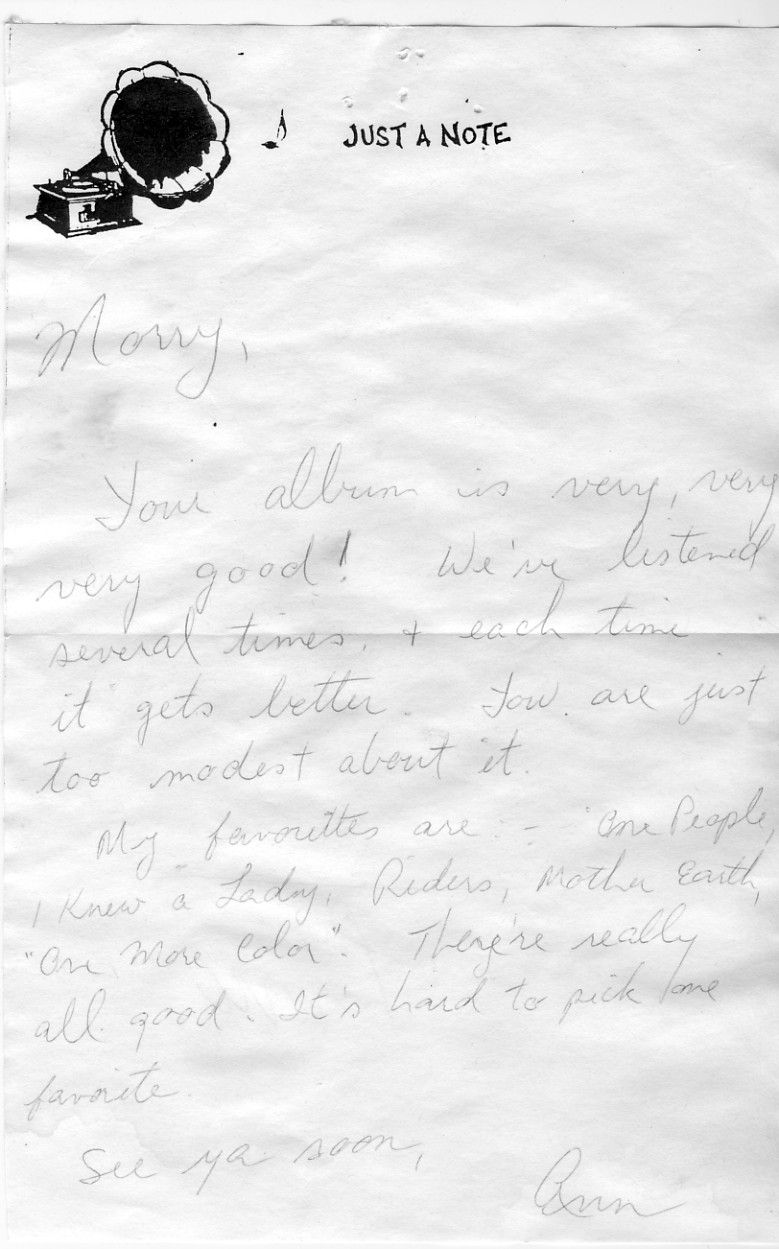 JUST A NOTE
Morry,
Your album is very, very
very good! We've listened
several times, + each time
it gets better. You are just
too modest about it.
My favorites are :- One People,
I Knew a Lady, Riders, Mother Earth,
"One More Color". They're really
all good. It's hard to pick one
favorite.
See ya soon,
Ann